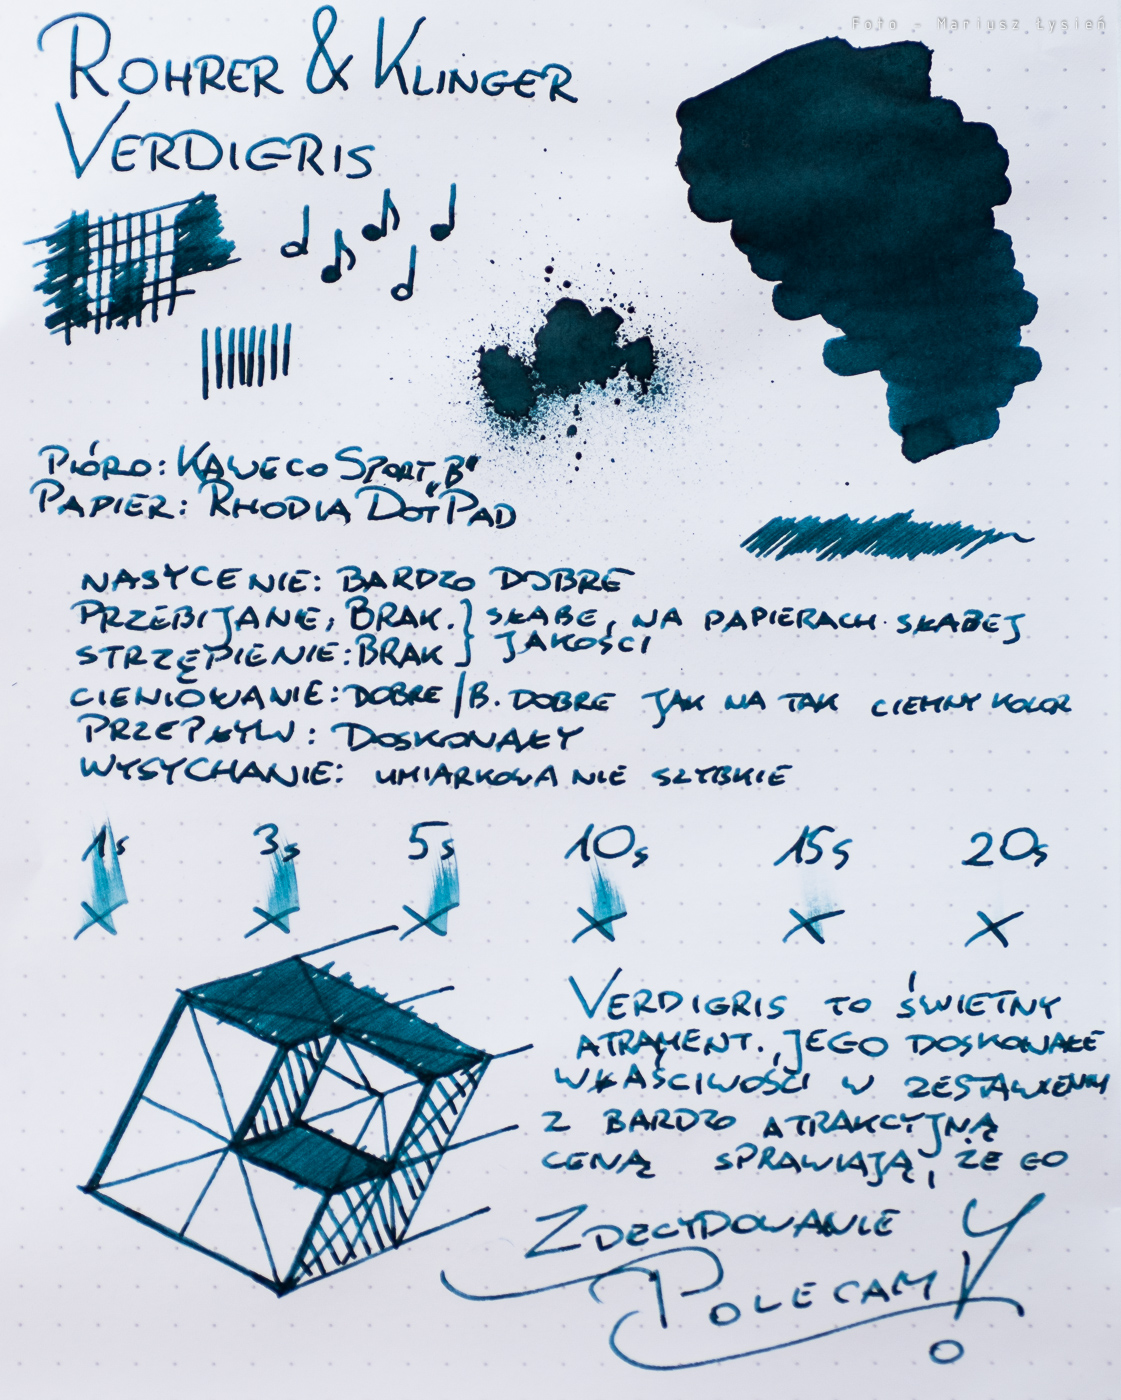 Foto - Mariusz Łysień
ROHRER & KLINGER
VERDIGRIS
PIÓRO: KAWECO SPORT „B"
PAPIER: RHODIA DOTPAD
NASYCENIE: BARDZO DOBRE
PRZEBIJANIE: BRAK. } SŁABE, NA PAPIERACH SŁABEJ
STRZĘPIENIE: BRAK } JAKOŚCI
CIENIOWANIE: DOBRE / B. DOBRE JAK NA TAK CIEMNY KOLOR
PRZEPŁYW: DOSKONAŁY
WYSYCHANIE: UMIARKOWANIE SZYBKIE
1s 3s 5s 10s 15s 20s
VERDIGRIS TO ŚWIETNY
ATRAMENT. JEGO DOSKONAŁE
WŁAŚCIWOŚCI W ZESTAWIENIU
Z BARDZO ATRAKCYJNĄ
CENĄ SPRAWIAJĄ, ŻE GO
ZDECYDOWANIE
POLECAM!